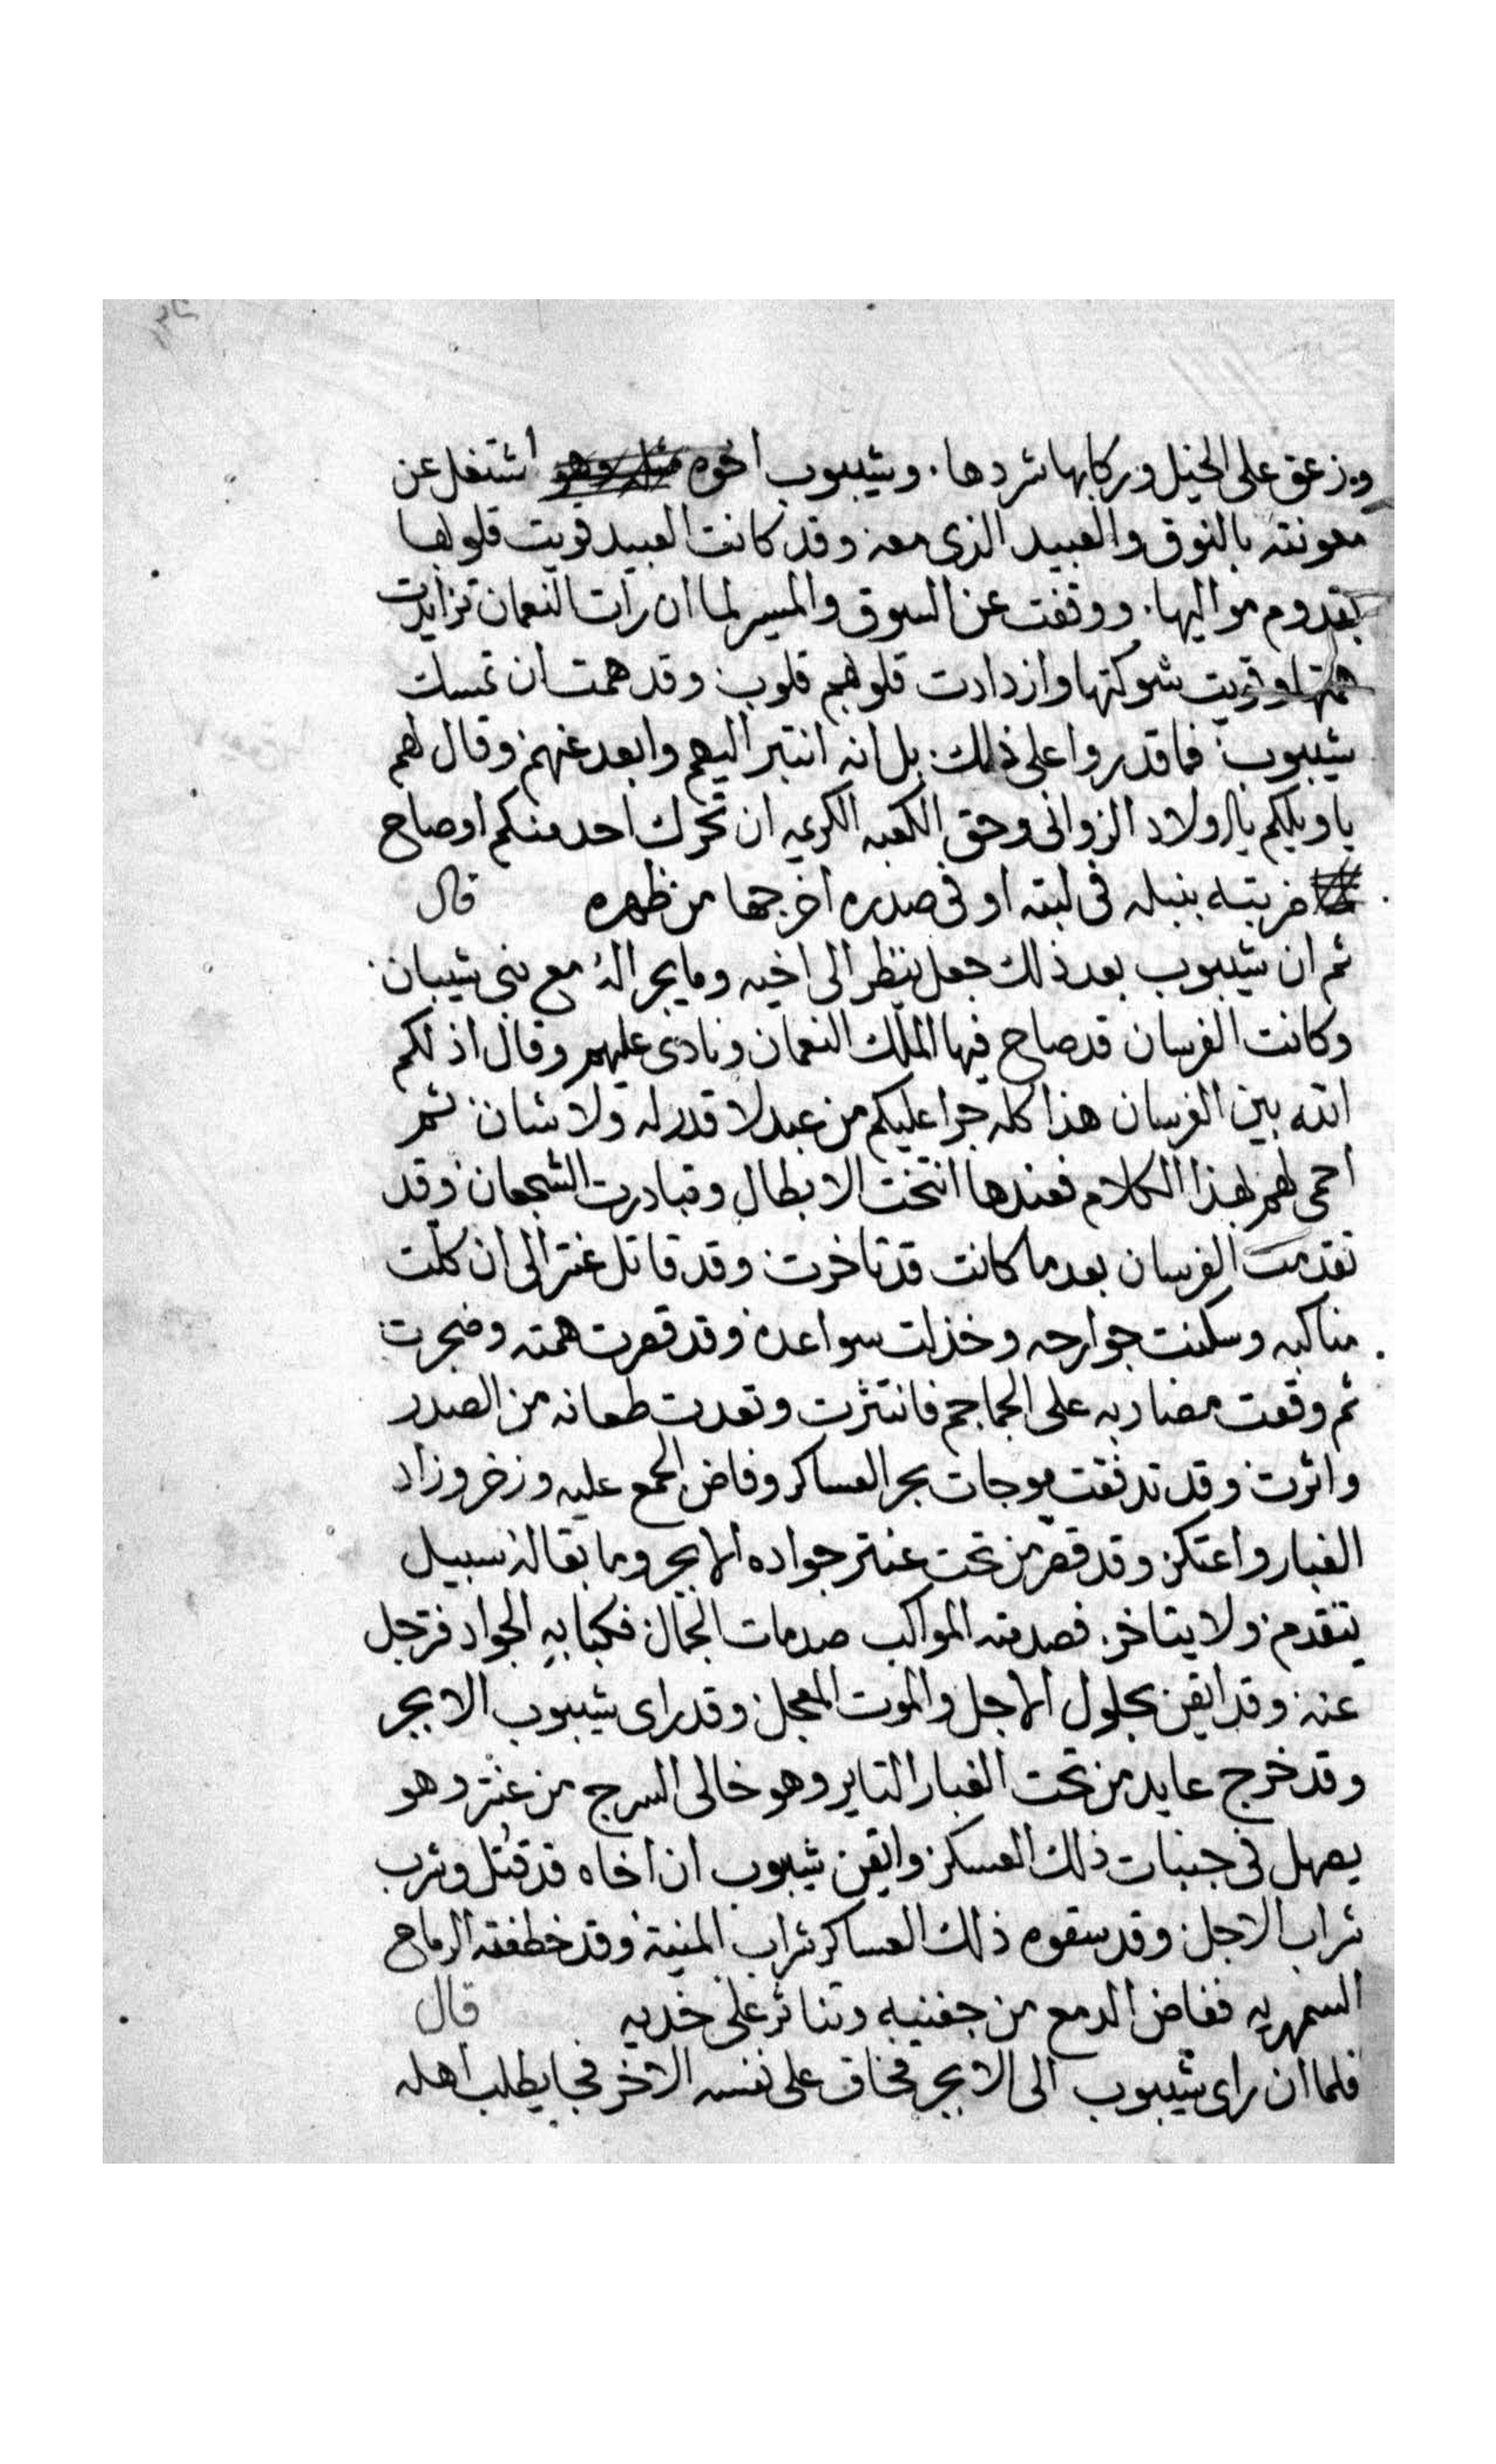 وزعق على الخيل وركابها شردها. وشيبوب اخوه اشتغل عن
معونته بالنوق والعبيد الذى معه وقد كانت العبيد قويت قلوبها
بقدوم مواليها. ووقفت عن السوق والمسير لما ان رات النعمان تزايدت
همتها وقويت شوكتها وازدادت قلوبهم قلوب وقد همت ان تمسك
شيبوب فما قدروا على ذلك بل انه انتبر اليهم وابعد عنهم وقال لهم
يا ويلكم يا اولاد الزوانى وحق الكعبه الكريمه ان تحرك احد منكم او صاح
ضربته بنبله فى لبته او فى صدره اخرجها من ظهره قال
ثم ان شيبوب بعد ذلك جعل ينظر الى اخيه وما يجرا له مع بنى شيبان
وكانت الفرسان قد صاح فيها الملك النعمان ونادى عليهم وقال اذلكم
الله بين الفرسان هذا كله جرا عليكم من عبد لا قدر له ولا شان ثم
احمى لهم بهذا الكلام فعندها انتخت الابطال وتبادرت الشجعان وقد
تقدمت الفرسان بعد ما كانت قد تاخرت وقد قاتل عنتر الى ان كلت
مناكبه وسكنت جوارحه وخذلت سواعده وقد قصرت همته وضجرت
ثم وقعت مضاربه على الجماجم فانتثرت وتعدت طعانه من الصدر
واثرت وقد تدفقت موجات بحر العساكر وفاض الجمع عليه وزخر وزاد
الغبار واعتكر وقد قصر من تحت عنتر جواده الابجر وما بقا له سبيل
يتقدم ولا يتاخر. فصدمته المواكب صدمات الجمال فكبا به الجواد فترجل
عنه وقد ايقن بحلول الاجل والموت المعجل وقد راى شيبوب الابجر
وقد خرج عايد من تحت الغبار التاير وهو خالى السرج من عنتر وهو
يصهل فى جنبات ذلك العسكر وايقن شيبوب ان اخاه قد قتل وشرب
شراب الاجل وقد سقوه ذلك العساكر شراب المنية وقد خطفته الرماح
السمهريه ففاض الدمع من جفنيه وتناثر على خديه قال
فلما ان راى شيبوب الى الابجر فخاف على نفسه الاخر فجا يطلب اهله